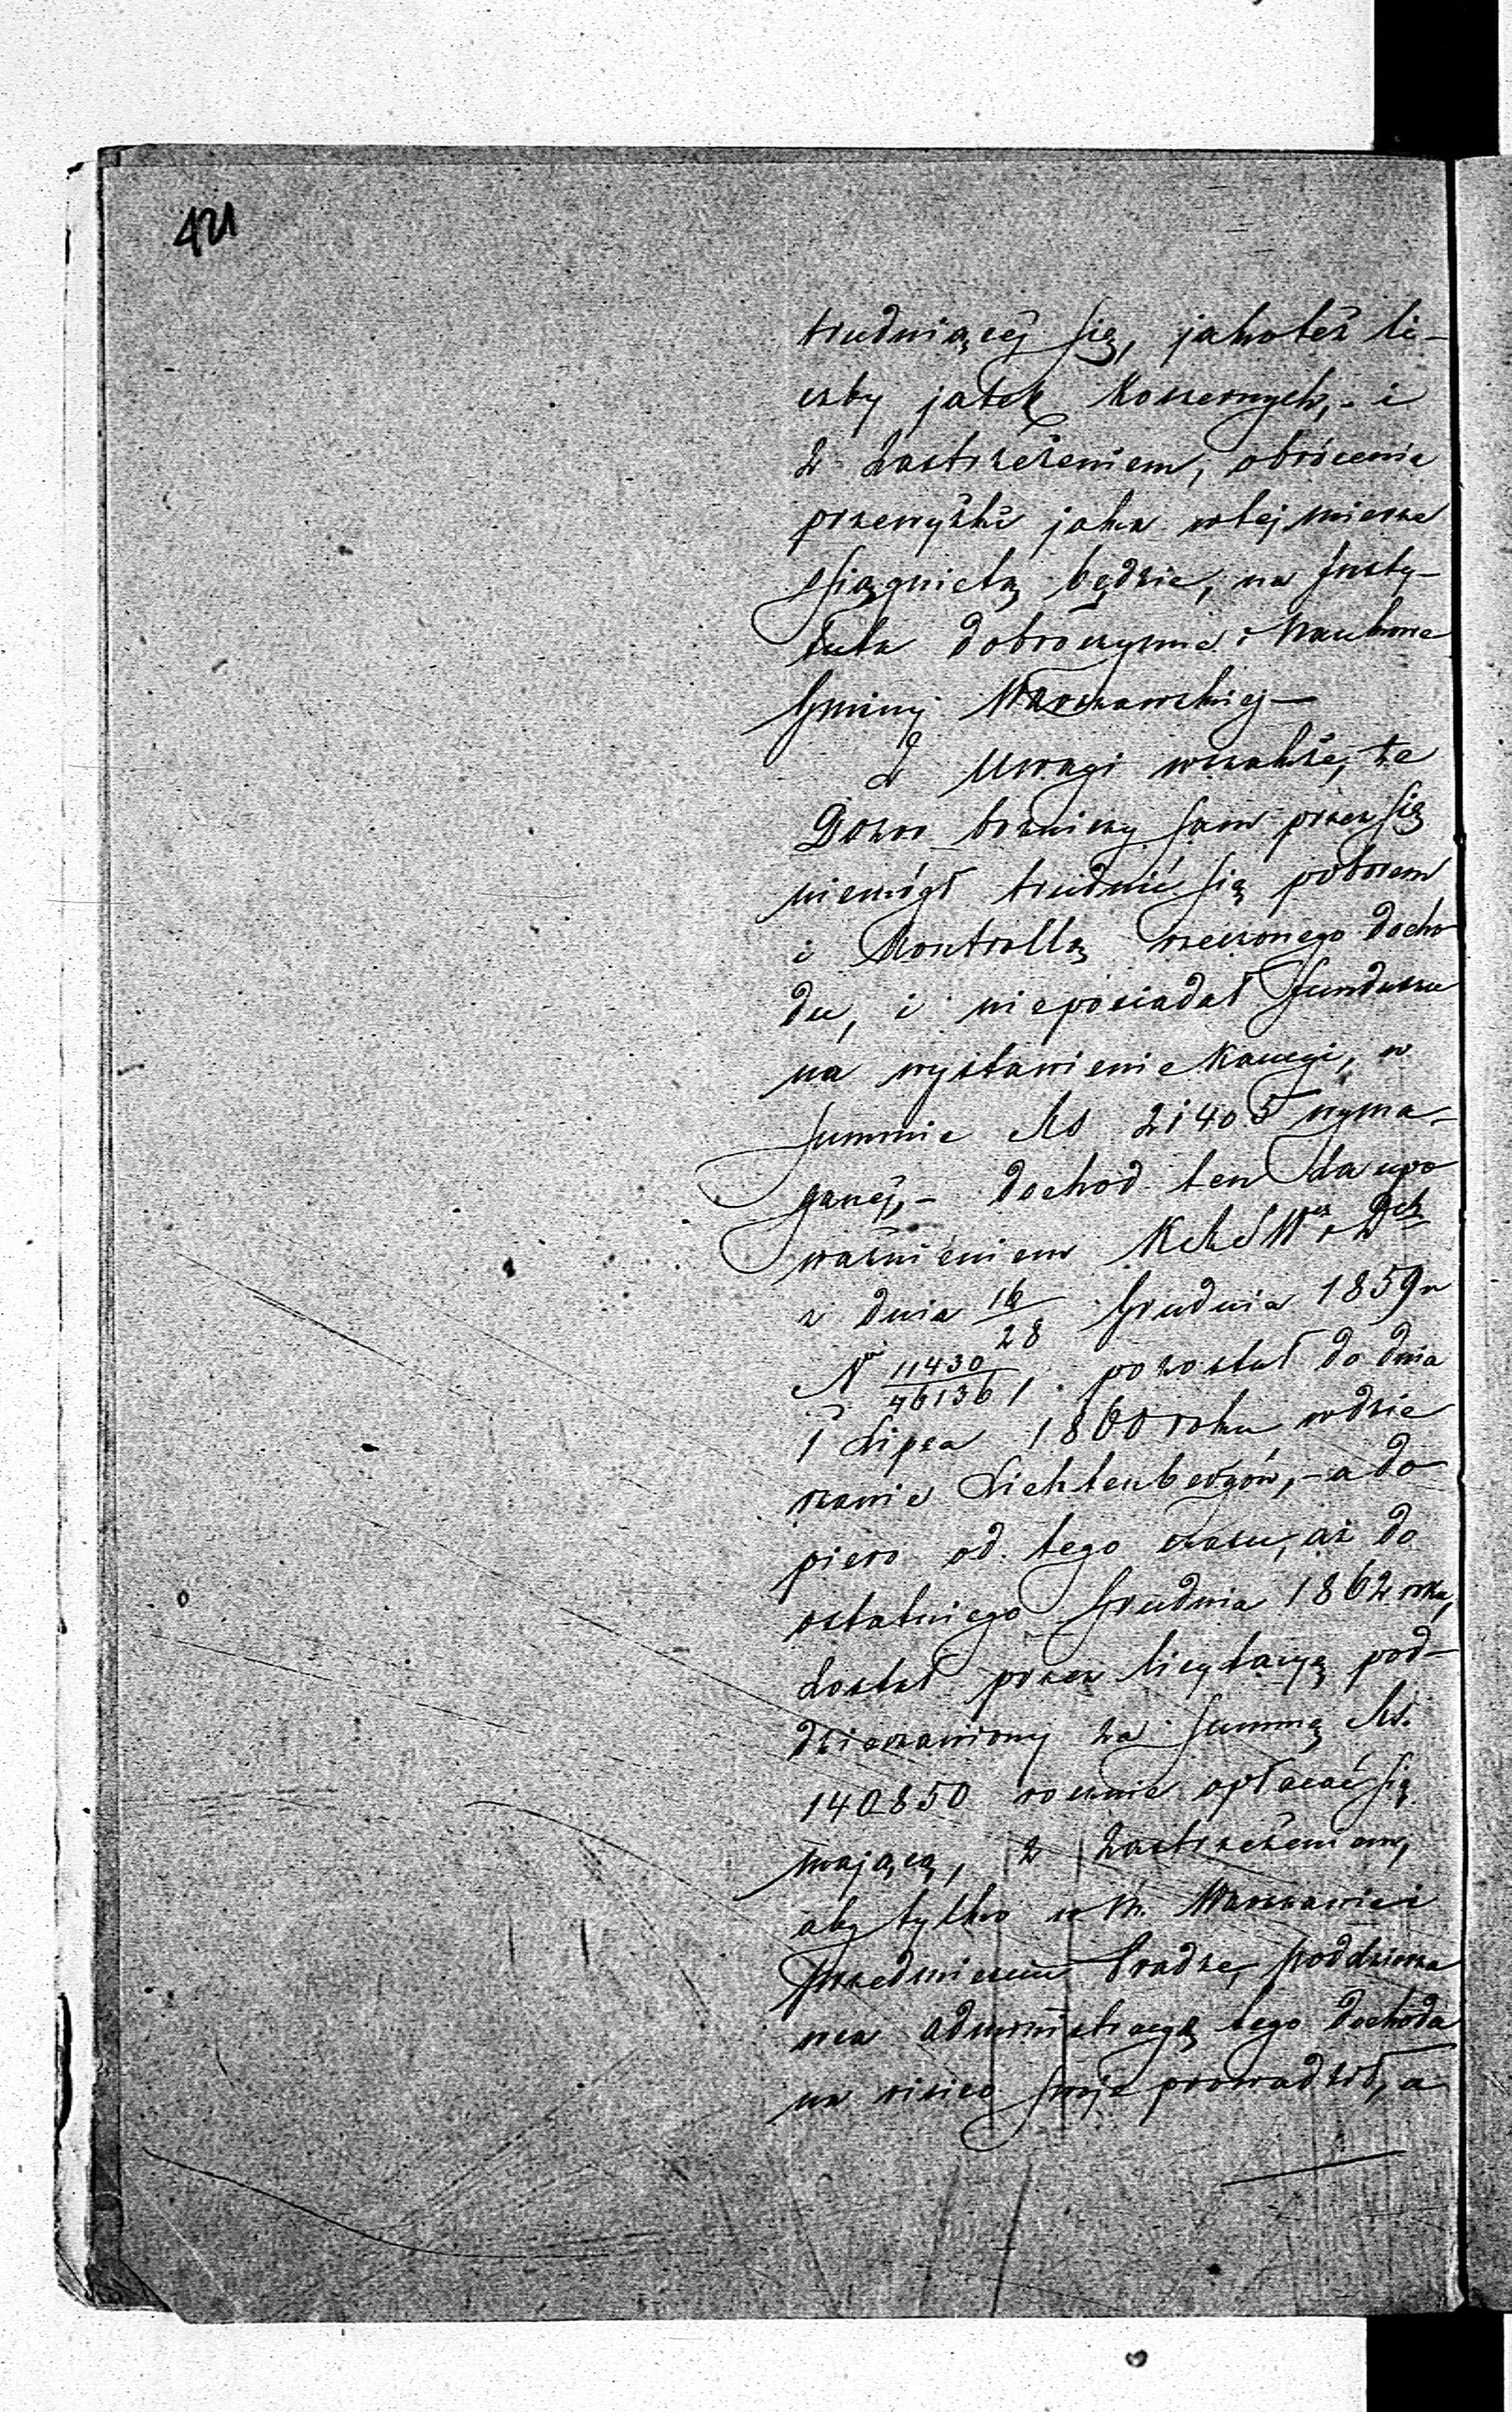 421
trudniącéj się, jakoteż li-
czby jatek Koszernych, - i
z zastrzeżeniem, obrócenia
przewyżki jaka w tej mierze
osiągniętą będzie, na Insty-
tuta dobroczynne i Naukowe
Gminy Warszawskiej -
Z uwagi wszakże, że
Dozor bożniczy sam przez się
niemógł trudnić się poborem
i Kontrollą rzeczonego docho
du, i nieposiadał funduszu
na wystawienie Kaucyi, w
summie Rs 21405 wyma-
ganéj, - dochod ten za upo
ważnieniem
z dnia 16/28 Grudnia 1859 r
No 11430/46136 pozostał do dnia
1 Lipca 1860 roku w dzie
rzawie Lichtenbergów, - a do
piero od tego czasu, aż do
ostatniego Grudnia 1862 roku,
został przez licytacyą pod-
dzierzawiony za summę Rs.
140850 rocznie opłacać się
mającą, z zastrzeżeniem,
aby tylko w M. Warszawie i
przedmieściu Pradze, poddzierza
wca administracyą tego dochodu
na risico swoje prowadził, a